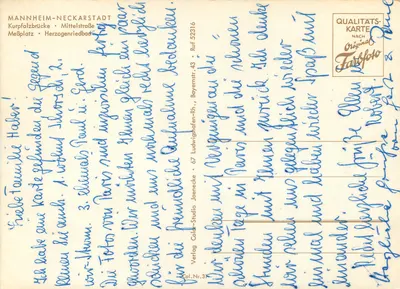 MANNHEIM-NECKARSTADT
Kurpfalzbrücke · Mittelstraße
Meßplatz · Herzogenriedbad
QUALITÄTS-
KARTE
NACH
Original
Farbfoto
Verlag Color-Studio Jaenecke · 67 Ludwigshafen-Rh., Bayernstr. 43 Ruf 52316
Liebe Familie Haber!
Ich habe eine Karte gefunden die Gegend
kennen Sie auch. 1. wohnt Schmidt, 2.
wir
3. Ehemals Paul u. Gerd.
Die Fotos von Paris sind inzwischen fertig
geworden. Wir möchten Ihnen gleich ein paar
schicken und uns nochmals recht herzlich
für die freundliche Aufnahme bedanken.
Wir denken mit Vergnügen an die
schönen Tage in Paris und die schönen
Stunden mit Ihnen zurück. Ich denke
wir sehen uns gelegentlich wieder
einmal und haben wieder Spaß mit-
einander.
Grüße